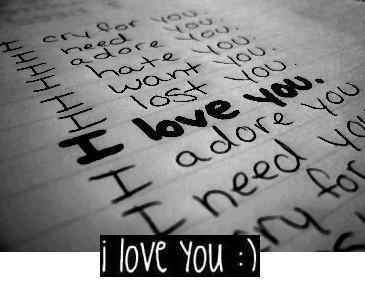 I cry for you.
I need you.
I adore you.
I hate you.
I want you.
I lost you.
I love you.
I adore you
I need you
cry for
i love you :)